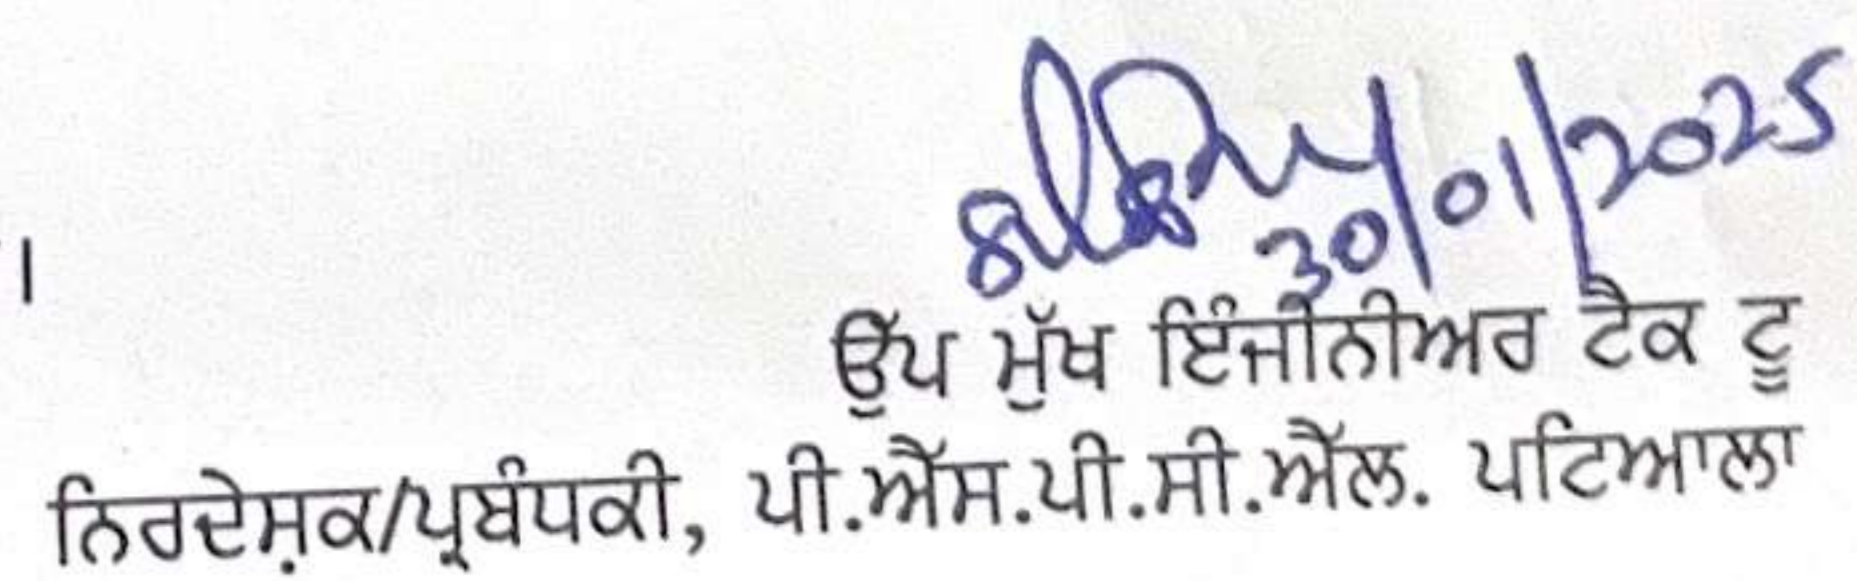 30/01/2025
।
ਉੱਪ ਮੁੱਖ ਇੰਜੀਨੀਅਰ ਟੈਕ ਟੂ
ਨਿਰਦੇਸ਼ਕ/ਪ੍ਰਬੰਧਕੀ, ਪੀ.ਐੱਸ.ਪੀ.ਸੀ.ਐੱਲ. ਪਟਿਆਲਾ